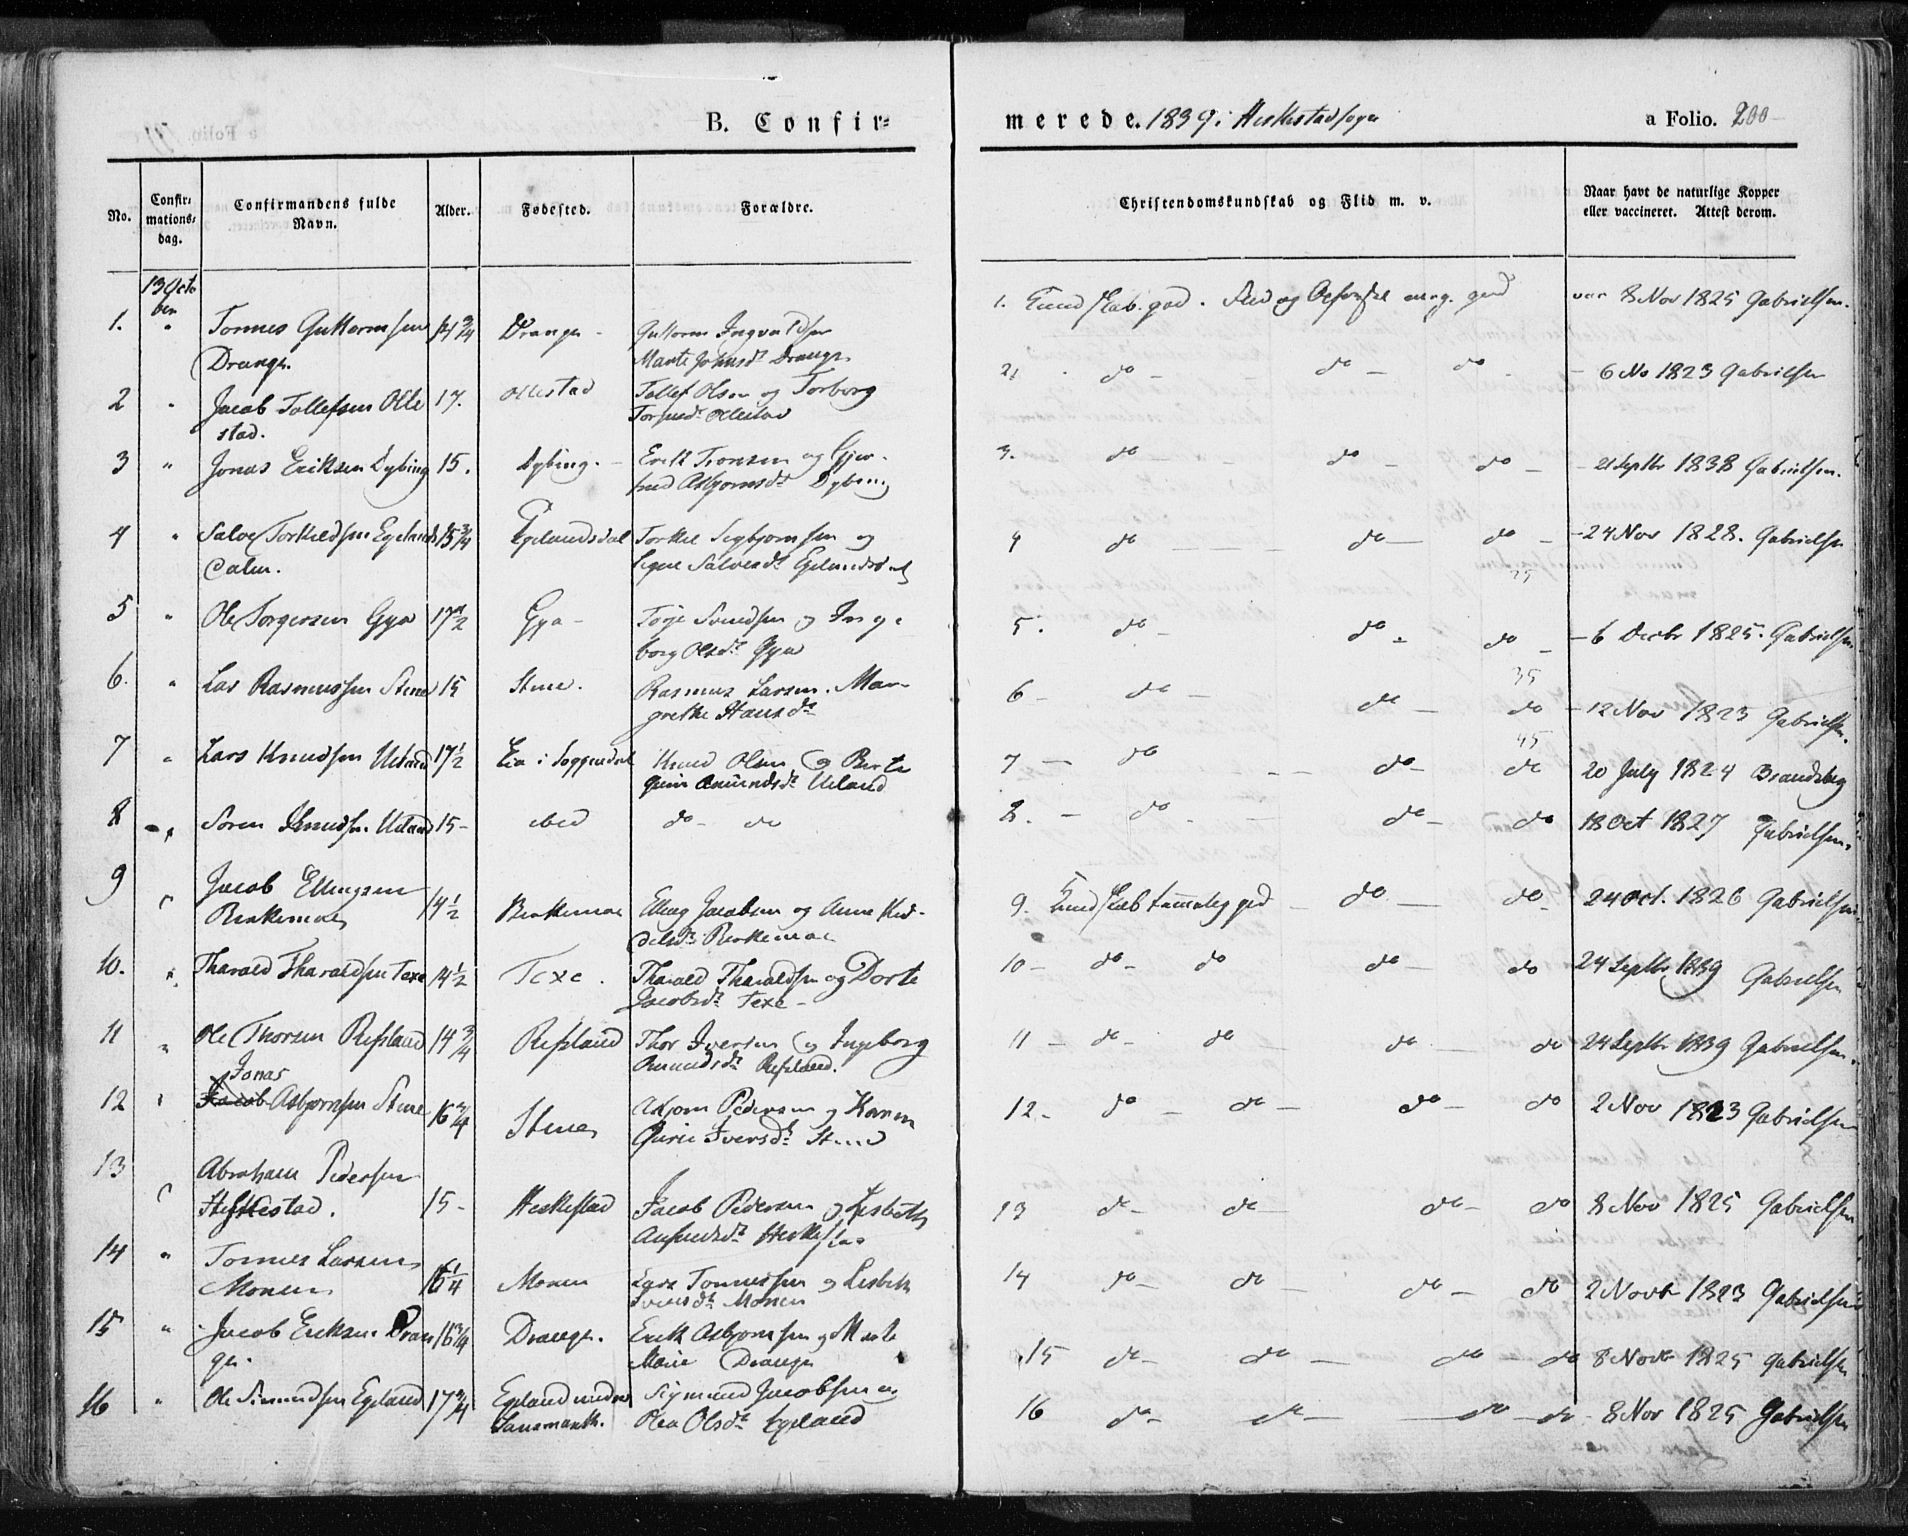 B. Confirmerede. 1839 i Heskestad sogn a Folio. 200
No. Confirmations-dag. Confirmandens fulde Navn. Alder. Fødested. Forældre. Christendomskundskab og Flid m. v. Naar havt de naturlige Kopper eller vaccineret. Attest derom.
13 Octo
ber
1. " Tonnes Guttormsen 14 3/4 Drange - Guttorm Ingvaldsen 1. Kundskab god. Flid og Opførsel meg. god vac 8 Nov 1825 Gabrielsen.
Drange. Marte Johnsdr Drange
2 " Jacob Tollefsen Olle 17. Ollestad Tollef Olsen og Torborg 2, do - do - do - 6 No 1823 Gabrielsen
stad. Ollestad
3 " Jonas Eriksen Dybing 15. Dybing. - Erik Tronsen og Gjer- 3. do - do - do - 21 Septbr 1838 Gabrielsen.
trud Asbjornsdr Dybing
4 " Salve Torkildsen Egelands 15 3/4 Egelandsdal Torkel Sigbjornsen og 4 do - do - do - 24 Nov 1828. Gabrielsen
dalen. Signe Salvesdr Egelandsdal
5 " Ole Torgersen Gya 17 1/2 Gya - Torje Svendsen og Inge- 5. do - do - do - 6 Decbr 1825. Gabrielsen
borg Olsdr Gya
6. " Lars Rasmussen Stene 15 Stene. Rasmus Larsen. Mar- 6 - do - do - do - 12 Nov 1823 Gabrielsen.
grethe Hansdr
7 " Lars Knudsen Ueland 17 1/2 Eia i Soggendal Knud Olsen og Berte 7 - do - do - do 20 July 1824 Brandsberg
Gurine Amundsdr Ueland
8 " Soren Knudsen Ueland 15 - ibid do - do 8. - do - do - do 18 Oct 1827 Gabrielsen.
9 " Jacob Ellingsen 14 1/2 Birkemoe Elling Jacobsen og Anne Ked- 9. Kundskab temmelig god do - do - 24 Oct. 1826 Gabrielsen
Birkemoe delsdr Birkemoe
10. " Tharald Tharaldsen Texe 14 1/2 Texe. Tharald Tharaldsen og Dorte 10 - do - do do - do 24 Septbr 1839 Gabrielsen
Jacobsdr Texe -
11 " Ole Thorsen Refsland 14 3/4 Refsland Thor Iversen og Ingeborg 11 - do - do do - do 24 Septbr 1839 Gabrielsen.
Omundsdr Refsland.
Jonas
12 " Jacob Asbjornsen Stene 16 3/4 Stene Asbjorn Pedersen og Karen 12 - do - do - do - do 2 Nov 1823 Gabrielsen
Gurie Iversdr Stene
13 " Abraham Pedersen 15 - Heskestad Jacob Pedersen og Lisbeth 13 do - do - do - do 8 Nov 1825 Gabrielsen
Heskestad. Heskestad
14 " Tonnes Larsen 16 1/4 Monen Lars Tonnessen og Lisbeth 14 do - do - do - do 2 Novb 1823 Gabrielsen
Monen Iversdr Monen
15 " Jacob Eriksen Dran 16 3/4 Drange. Erik Asbjornsen og Marte 15 do - do - do - do 8 Novb 1825 Gabrielsen
ge. Marie Drange
16 " Ole Simundsen Egeland 17 3/4 Egeland under Sigmund Jacobsen og 16 do - do - do - do - 8 Nov 1825 Gabrielsen
Olea Olsdr Egeland